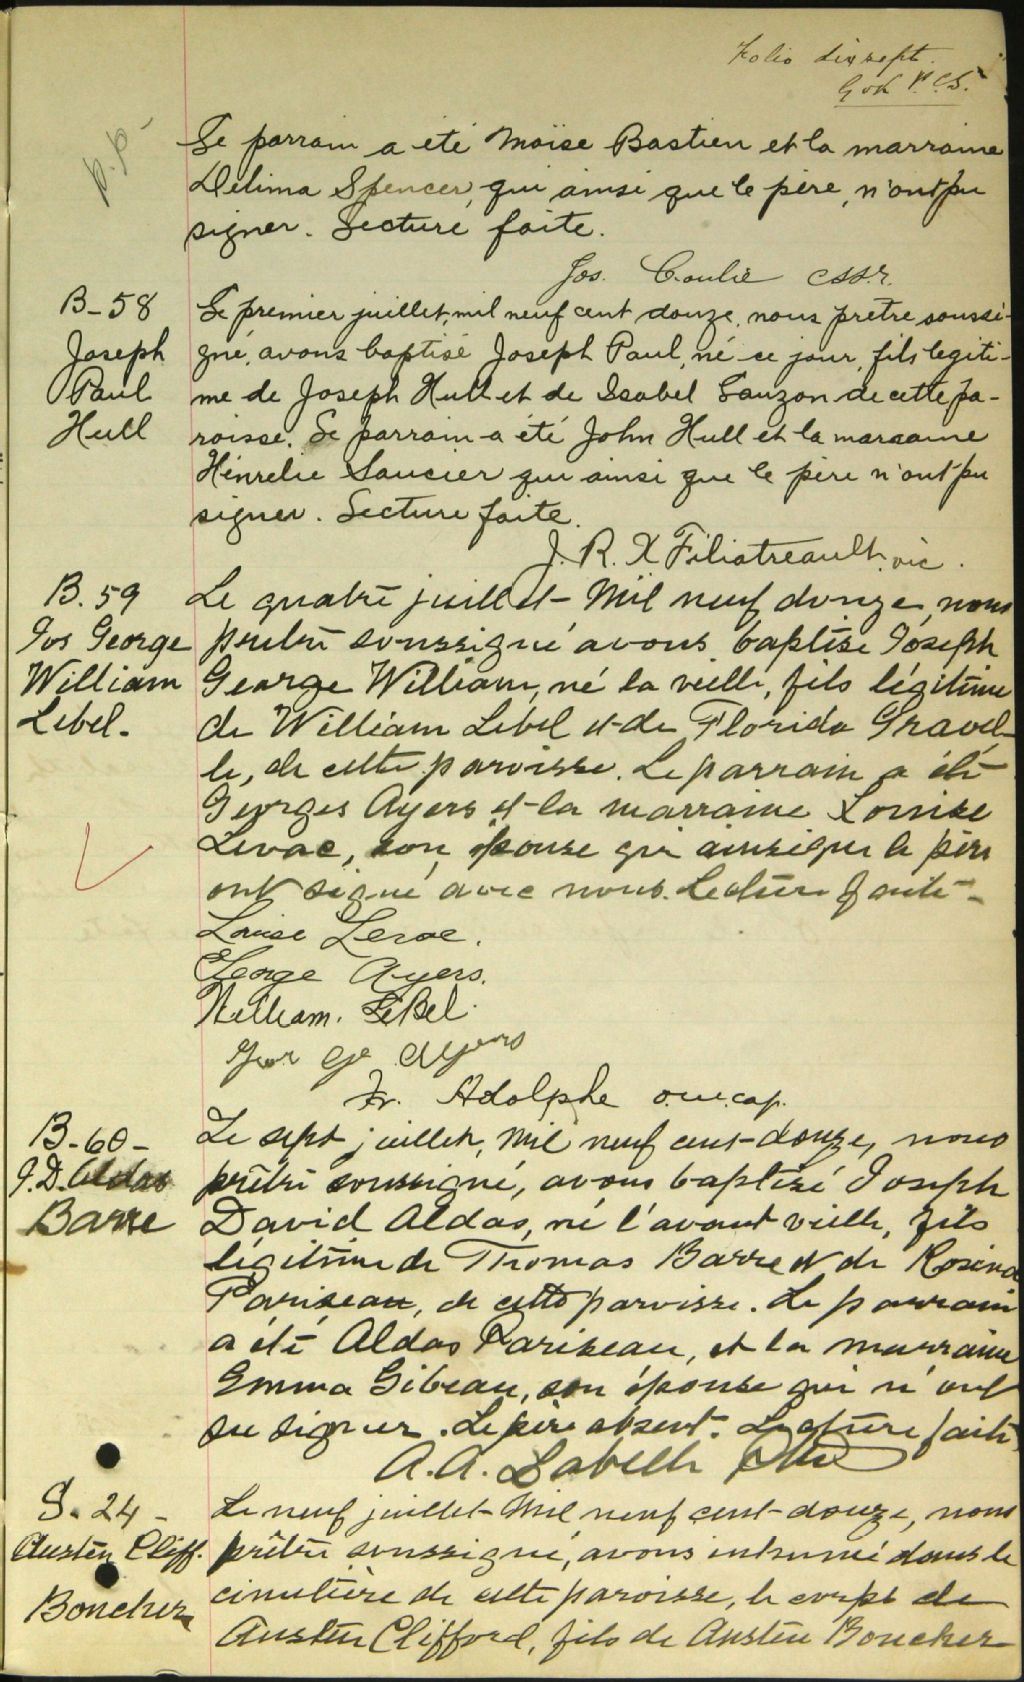 Folio dix sept.
p.p.
Le parrain a été Moïse Bastien et la marraine
Délima Spencer, qui ainsi que le père, n'ont pu
signer. Lecture faite.
Jos. Coulie c.ss.r.
B-58
Joseph
Paul
Hull
Le premier juillet, mil neuf cent douze, nous prêtre soussi-
gné, avons baptisé Joseph Paul, né ce jour, fils legiti-
me de Joseph Hull et de Isabel Lauzon de cette pa-
roisse. Le parrain a été John Hull et la marraine
Saucier qui ainsi que le père n'ont pu
signer. Lecture faite.
J. R. X Filiatreault, vic.
B. 59
Jos George
William
Lebel.
Le quatre juillet Mil neuf douze, nous
prêtre soussigné avons baptise Joseph
George William, né la veille, fils légitime
de William Lebel et de Florida Gravel-
le, de cette paroisse. Le parrain a été
Georges Ayers et la marraine Louise
Levac, son épouse qui ainsi que le père
ont signé avec nous. Lecture faite-
Louise Levac.
George Ayers.
William. LeBel.
George Ayers
Fr. Adolphe o.m.cap.
B-60-
J.D. Aldas
Barre
Le sept juillet, Mil neuf cent-douze, nous
prêtre soussigné, avons baptisé Joseph
David Aldas, né l'avant veille, fils
légitime de Thomas Barre et de Rosina
Pariseau, de cette paroisse. Le parrain
a été Aldas Pariseau, et la marraine
Emma Gibeau, son épouse qui n'ont
su signer. Le père absent. Lecture faite.
A. A. Labelle Ptre
S. 24 -
Austin Cliff.
Boucher
Le neuf juillet Mil neuf cent-douze, nous
prêtre soussigné, avons inhumé dans le
cimetière de cette paroisse, le corps de
Austin Clifford, fils de Austin Boucher